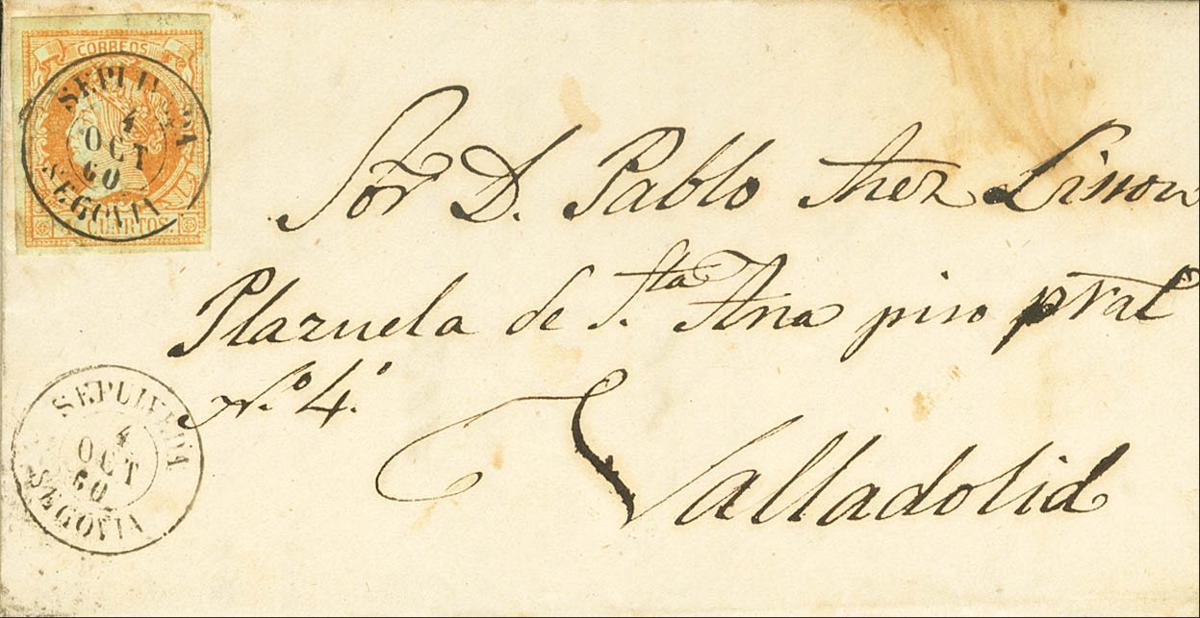 CORREOS
SEPULVEDA
4
OCT
60
SEGOVIA
CUARTOS.
Sor. D. Pablo
Plazuela de Sta. Ana piso pral
No. 4.
SEPULVEDA
4
OCT
60
SEGOVIA
Valladolid